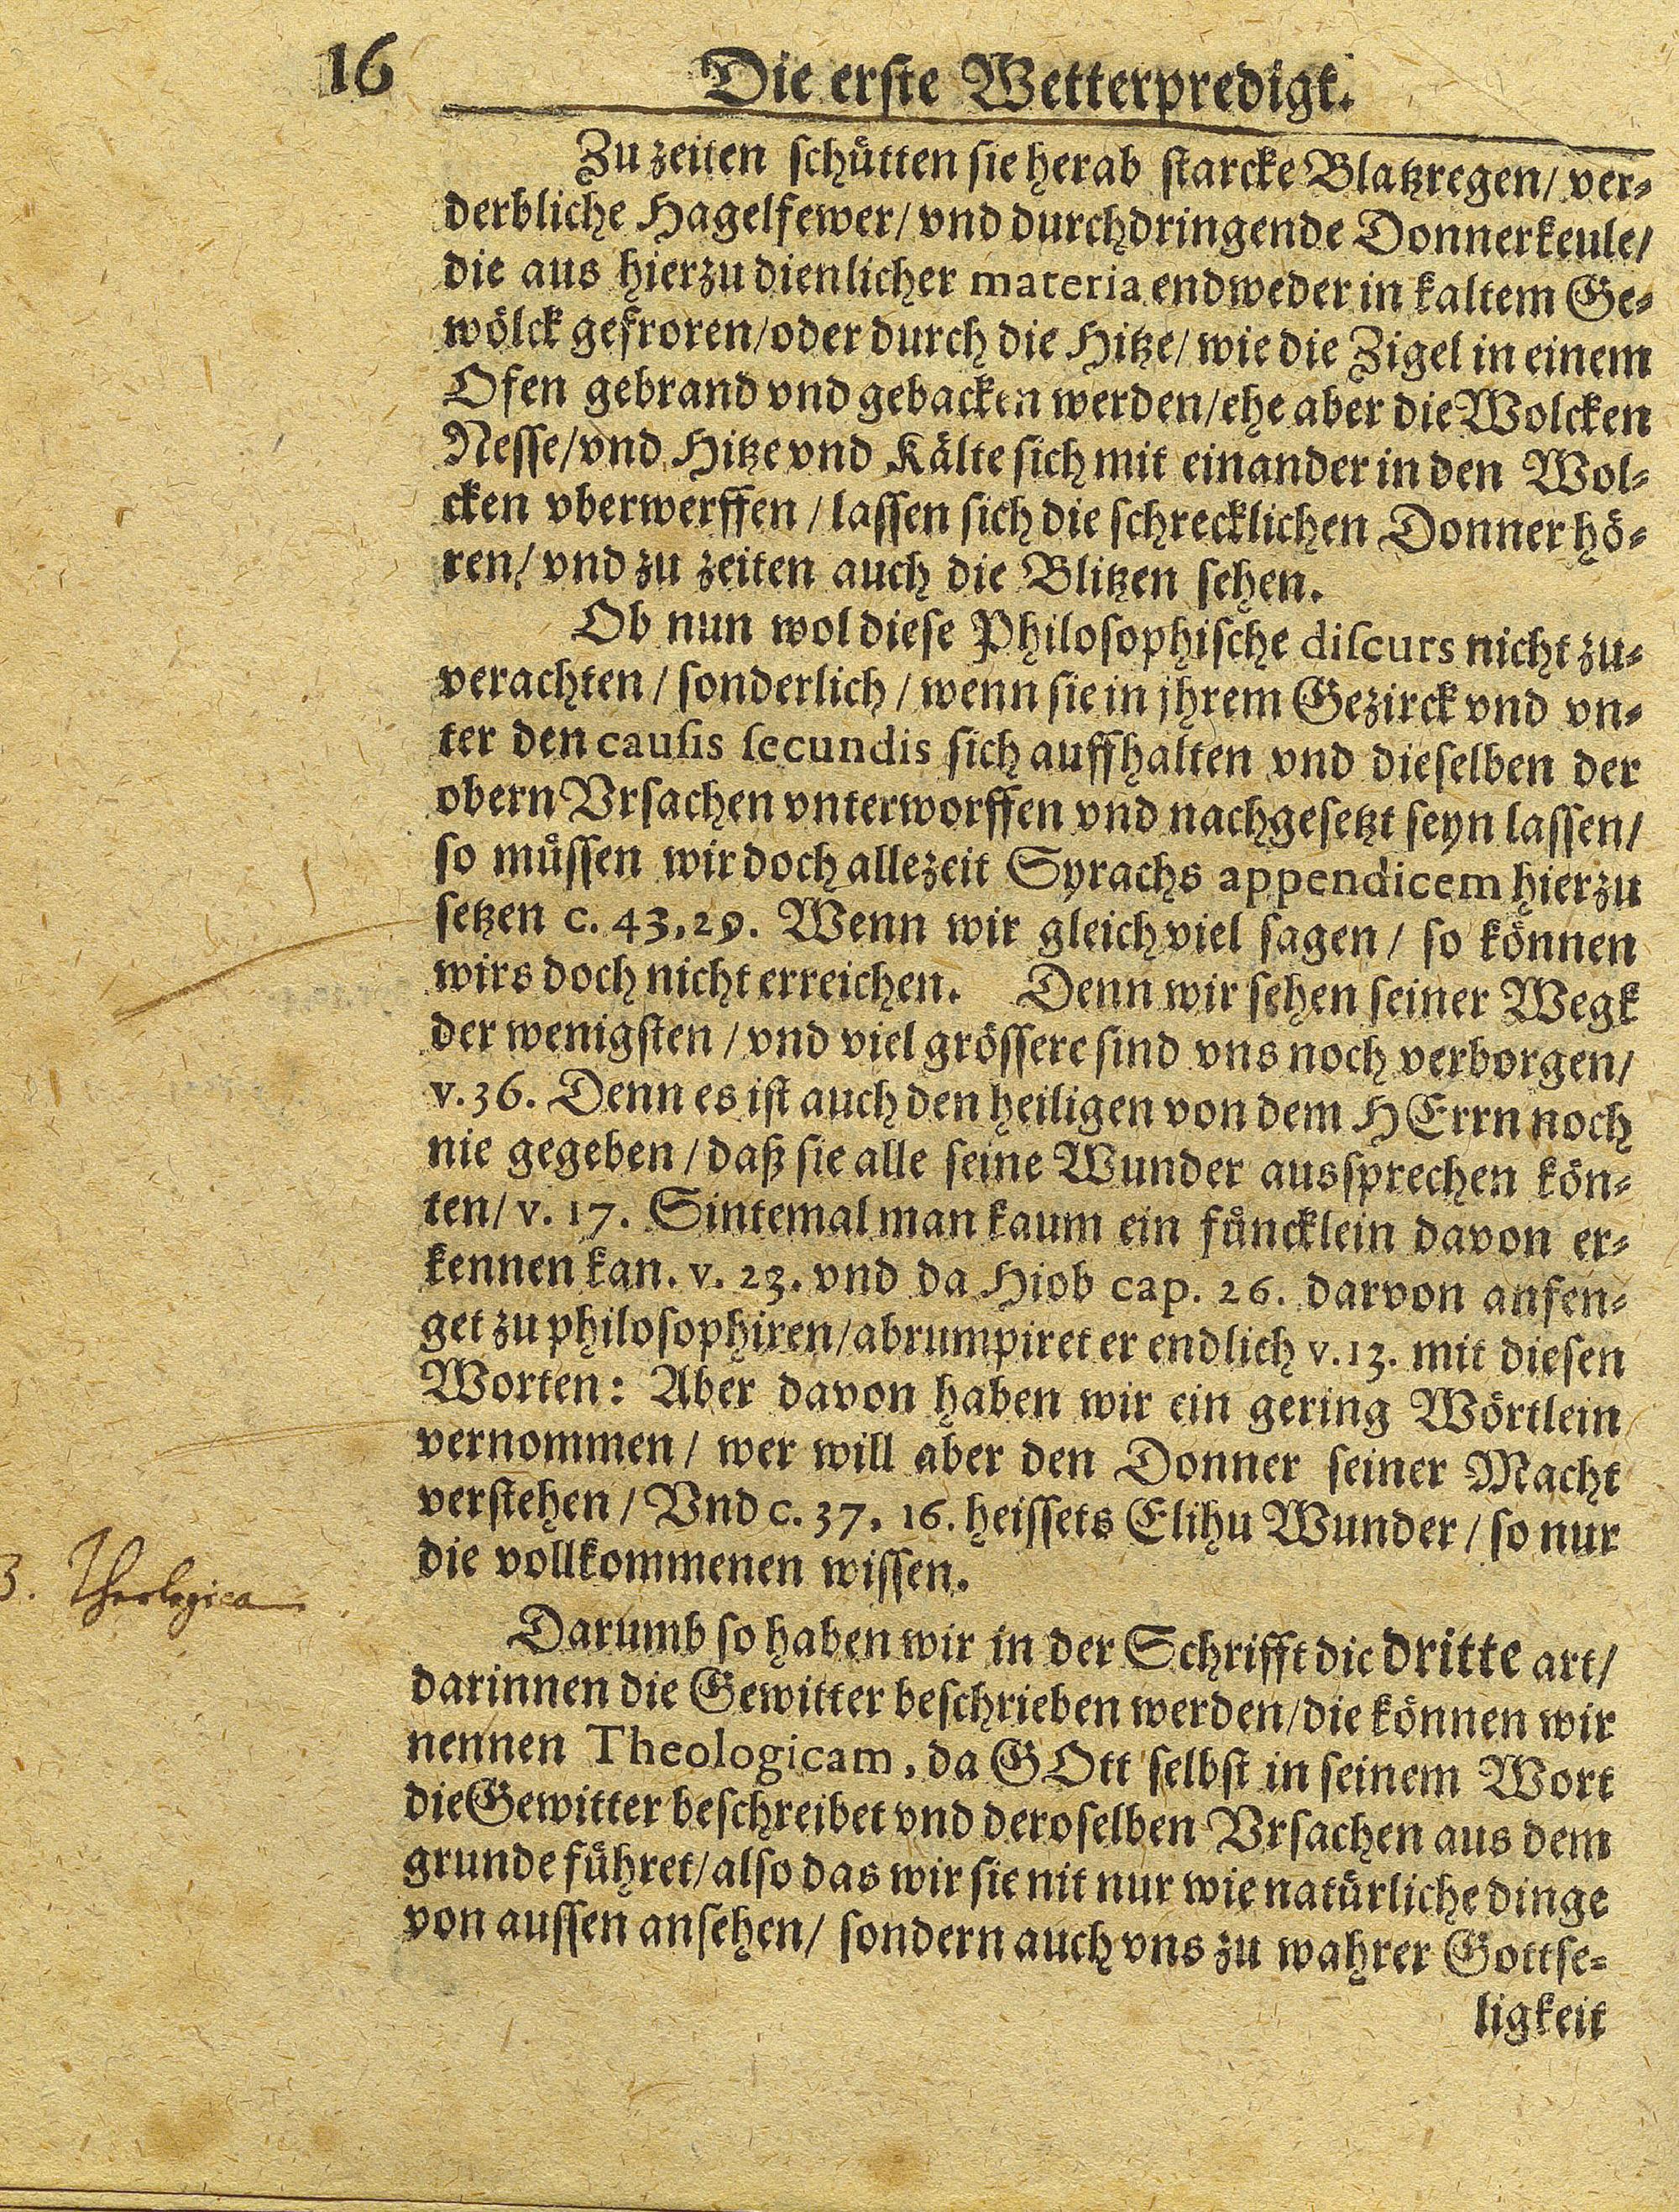 16
Die erste Wetterpredigt.
Zu zeiten schütten sie herab starcke Blatzregen/ ver⸗
derbliche Hagelfewer/ vnd durchdringende Donnerkeule/
die aus hierzu dienlicher materia endweder in kaltem Ge⸗
wölck gefroren/oder durch die Hitze/ wie die Zigel in einem
Ofen gebrand vnd gebacken werden/ehe aber die Wolcken
Nesse/vnd Hitze vnd Kälte sich mit einander in den Wol⸗
cken vberwerffen / lassen sich die schrecklichen Donner hö⸗
ren/ vnd zu zeiten auch die Blitzen sehen.
Ob nun wol diese Philosophische discurs nicht zu⸗
verachten / sonderlich / wenn sie in jhrem Gezirck vnd vn⸗
ter den causis secundis sich auffhalten vnd dieselben der
obern Vrsachen vnterworffen vnd nachgesetzt seyn lassen/
so müssen wir doch allezeit Syrachs appendicem hierzu
setzen c. 43,29. Wenn wir gleich viel sagen / so können
wirs doch nicht erreichen. Denn wir sehen seiner Wegk
der wenigsten / vnd viel grössere sind vns noch verborgen/
v. 36. Denn es ist auch den heiligen von dem HErrn noch
nie gegeben / daß sie alle seine Wunder aussprechen kön⸗
ten/ v. 17. Sintemal man kaum ein füncklein davon er⸗
kennen kan. v. 23. vnd da Hiob cap. 26. darvon anfen⸗
get zu philosophiren/abrumpiret er endlich v. 13. mit diesen
Worten: Aber davon haben wir ein gering Wörtlein
vernommen / wer will aber den Donner seiner Macht
verstehen / Vnd c. 37, 16. heissets Elihu Wunder / so nur
die vollkommenen wissen.
3. Theologica
Darumb so haben wir in der Schrifft die dritte art/
darinnen die Gewitter beschrieben werden/die können wir
nennen Theologicam, da GOtt selbst in seinem Wort
die Gewitter beschreibet vnd deroselben Vrsachen aus dem
grunde führet/also das wir sie nit nur wie natürliche dinge
von aussen ansehen/ sondern auch vns zu wahrer Gottse⸗
ligkeit